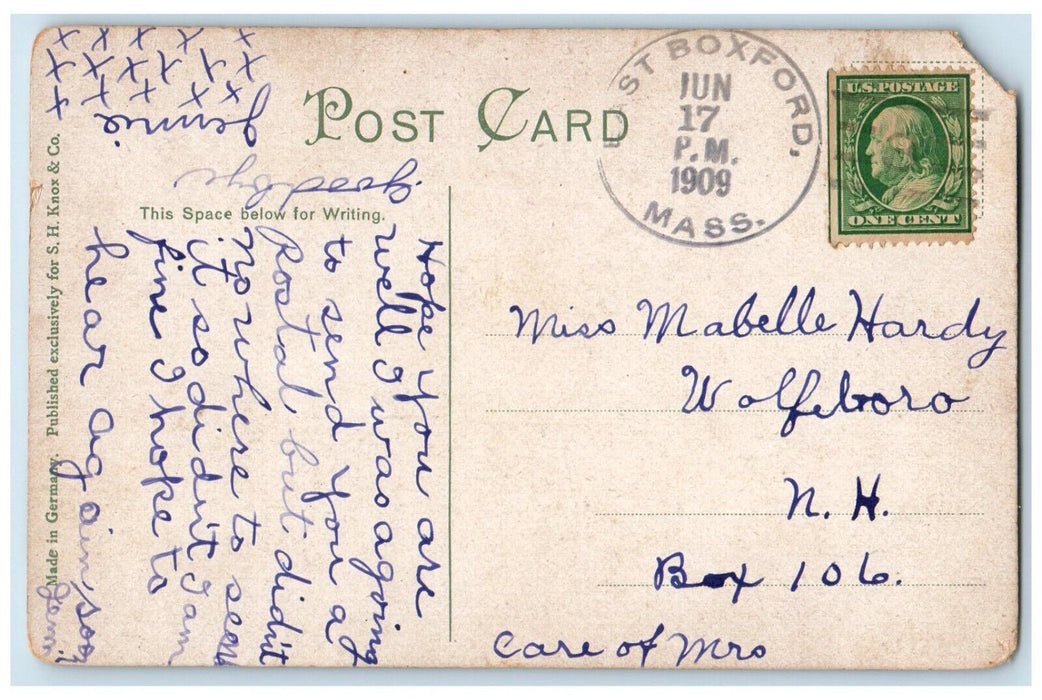 POST CARD
EAST BOXFORD,
JUN
17
P.M.
1909
MASS.
U.S. POSTAGE
ONE CENT
This Space below for Writing.
Made in Germany. Published exclusively for S. H. Knox & Co.
Hope you are
well I was a going
to send you a
Postal but didn't
no where to send
it so didn't I am
fine I hope to
hear again soon
Jennie
good bye
x x x x x
x x x x x
x x x x x
x x x x
Miss Mabelle Hardy
Wolfeboro
N. H.
Box 106.
Care of Mrs